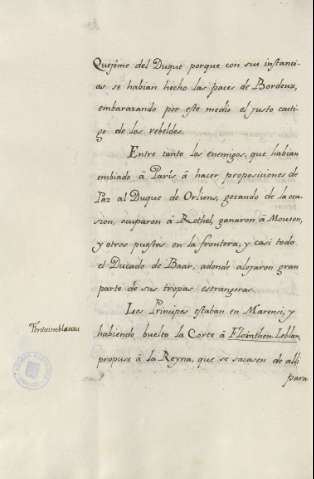 Quejéme del Duque porque con sus instanci-
as se habian hecho las paces de Bordeux,
embarazando por este medio el justo casti-
go de los rebeldes.
Entre tanto los enemigos, que habian
embiado á París á hacer proposiciones de
Paz al Duque de Orliens, gozando de la oca-
sion, ocuparon á Rethel, ganaron á Mouson,
y otros puestos en la frontera, y casi todo
el Ducado de Baar, adonde alojaron gran
parte de sus tropas estrangeras.
Los Principes estaban en Marensi, y
habiendo buelto la Corte á Flointheu Leblau,
propuse á la Reyna, que se sacasen de alli
para